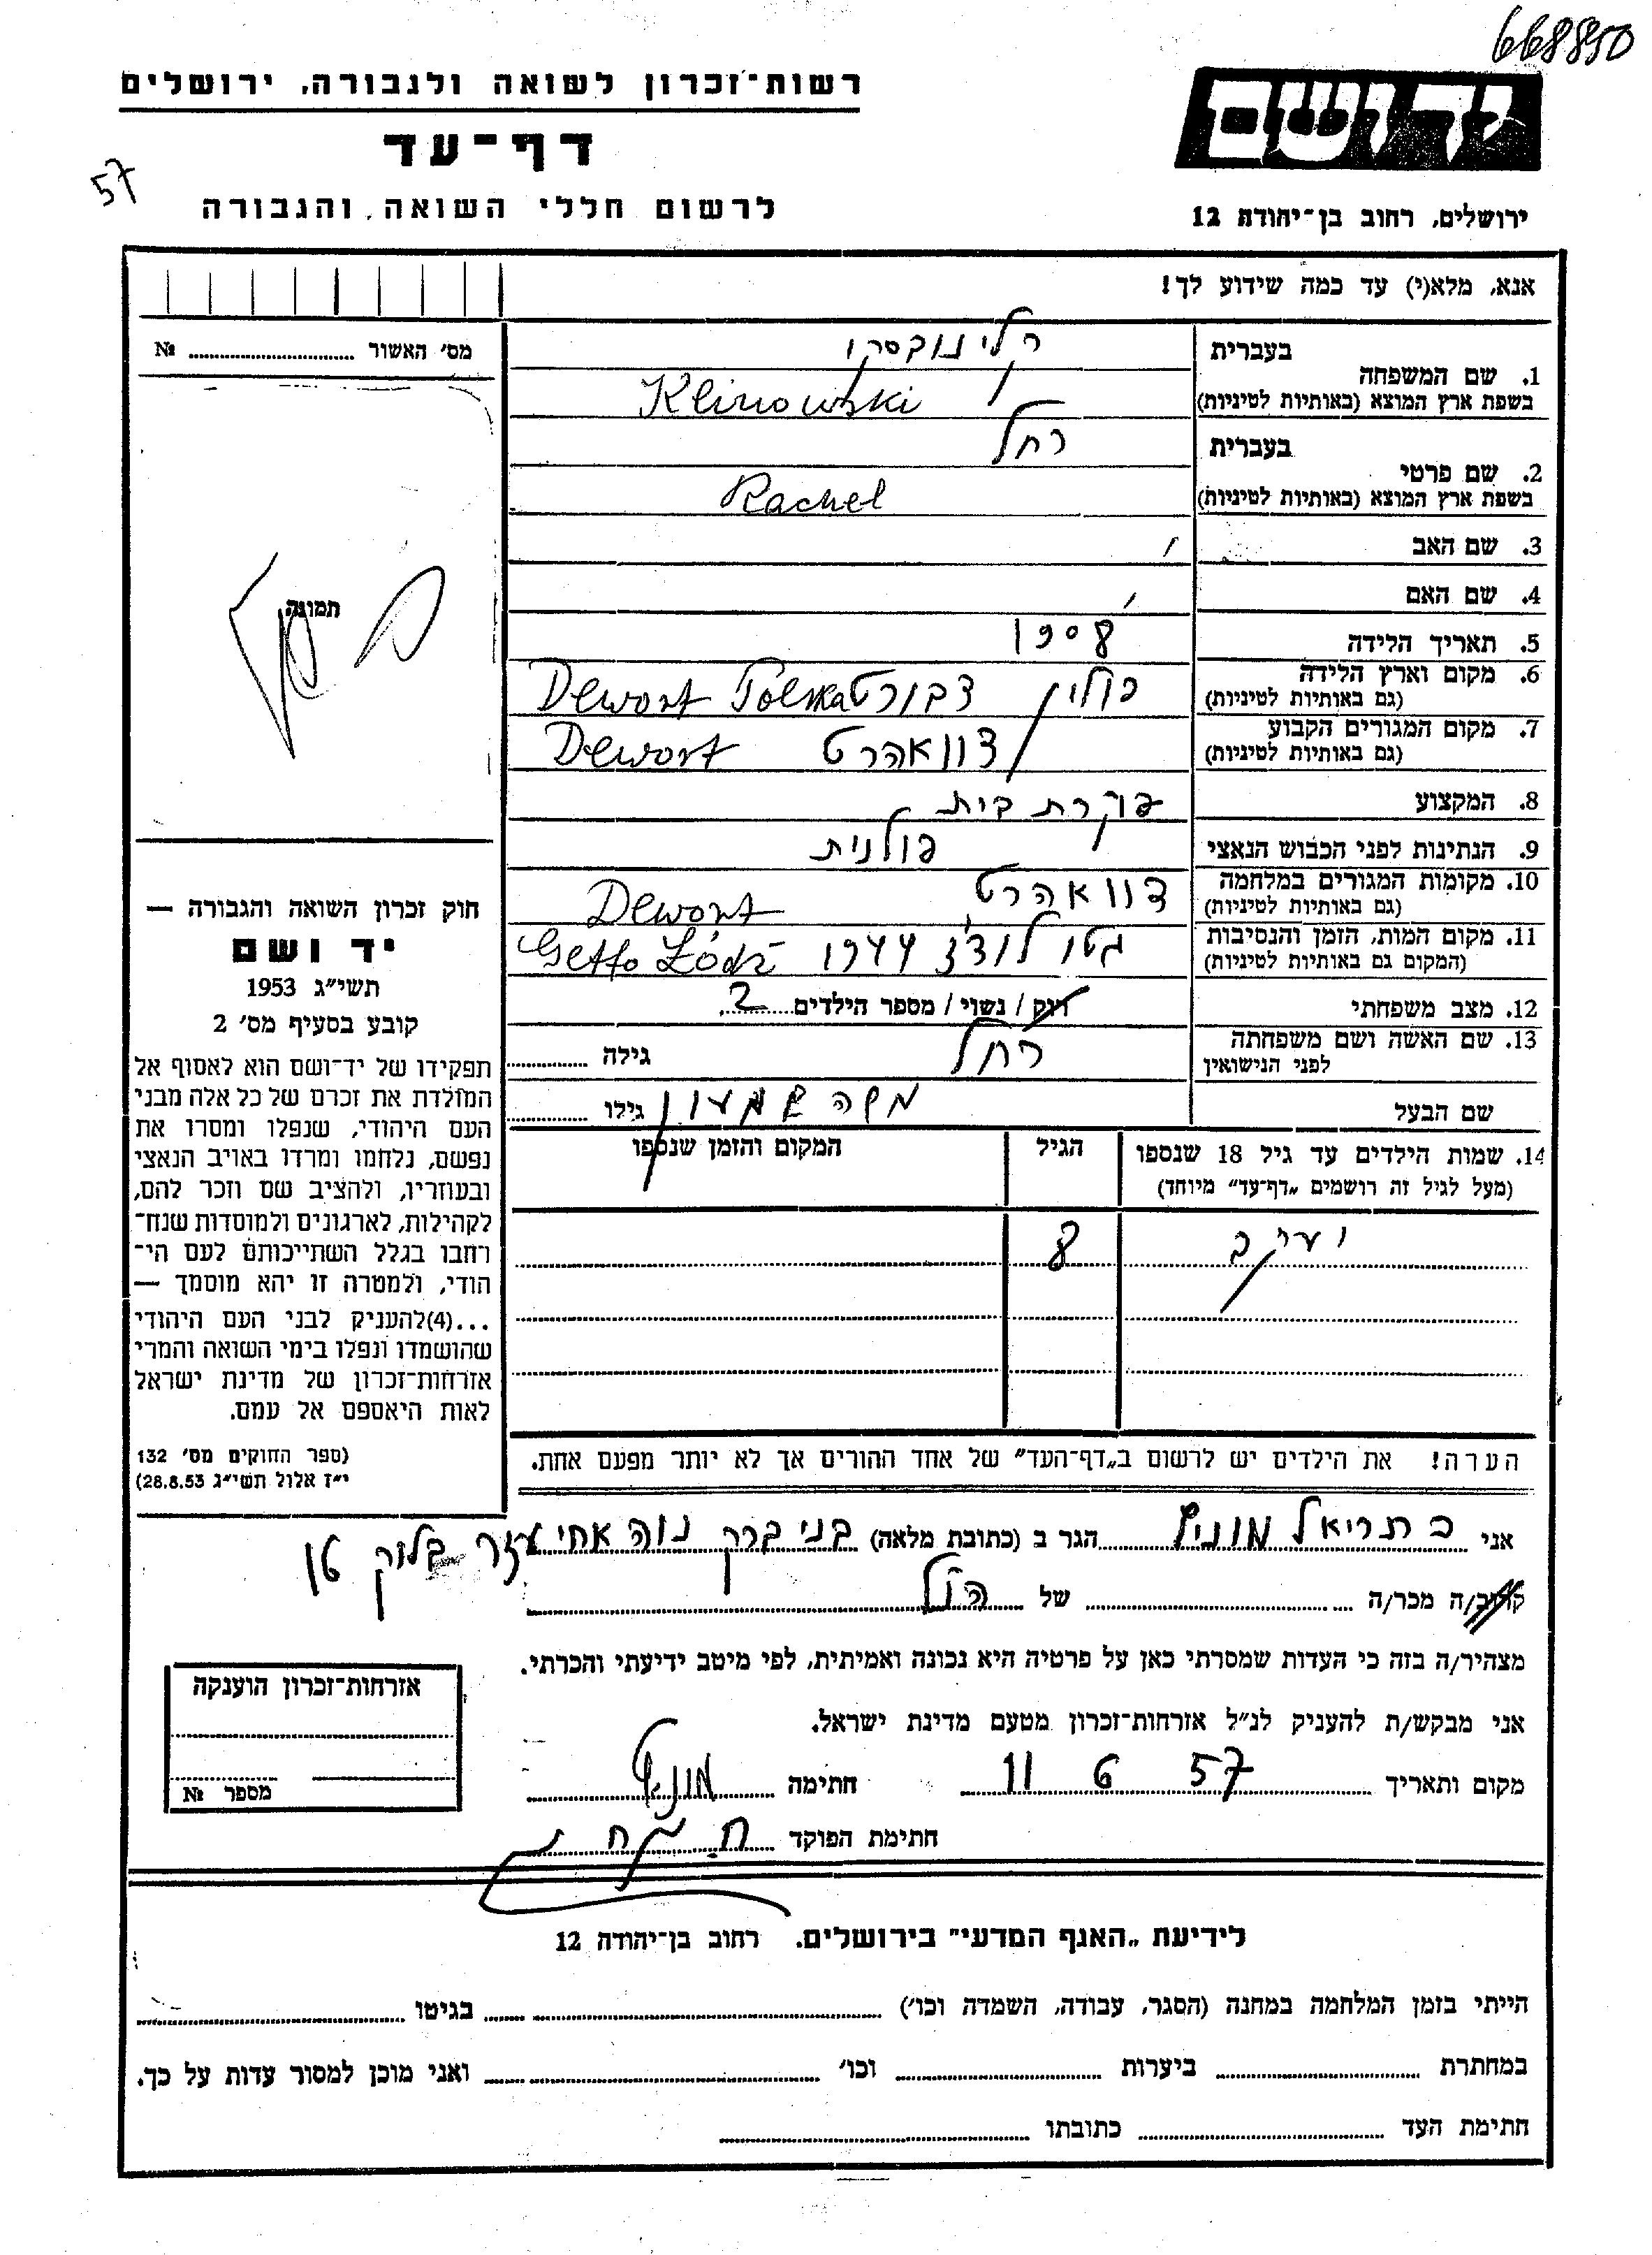 668850
רשות־זכרון לשואה ולגבורה, ירושלים
ידושם
דף־עד
57
לרשום חללי השואה והגבורה
ירושלים, רחוב בן־יהודה 12
אנא, מלא(י) עד כמה שידוע לך!
מס׳ האשור № 
בעברית קלינובסקי
1. שם המשפחה
בשפת ארץ המוצא (באותיות לטיניות) Klinowski
בעברית רחל
2. שם פרטי
בשפת ארץ המוצא (באותיות לטיניות) Rachel
3. שם האב
4. שם האם
תמונה
5. תאריך הלידה 1908
6. מקום וארץ הלידה
(גם באותיות לטיניות) פולין דבורט Dewort Polska
7. מקום המגורים הקבוע
(גם באותיות לטיניות) דוואהרט Dewort
8. המקצוע עקרת בית
9. הנתינות לפני הכבוש הנאצי פולנית
10. מקומות המגורים במלחמה
(גם באותיות לטיניות) דוואהרט Dewort
11. מקום המות, הזמן והנסיבות
(המקום גם באותיות לטיניות) גטו לודז 1944 Getto Łódź
12. מצב משפחתי רוק / נשוי / מספר הילדים 2
13. שם האשה ושם משפחתה
לפני הנישואין רחל גילה
שם הבעל משה שמעון גילו
14. שמות הילדים עד גיל 18 שנספו הגיל המקום והזמן שנספו
(מעל לגיל זה רושמים „דף־עד״ מיוחד)
יעקב 8
הערה! את הילדים יש לרשום ב„דף־העד״ של אחד ההורים אך לא יותר מפעם אחת.
חוק זכרון השואה והגבורה —
יד ושם
תשי״ג 1953
קובע בסעיף מס׳ 2
תפקידו של יד־ושם הוא לאסוף אל
המולדת את זכרם של כל אלה מבני
העם היהודי, שנפלו ומסרו את
נפשם, נלחמו ומרדו באויב הנאצי
ובעוזריו, ולהציב שם וזכר להם,
לקהילות, לארגונים ולמוסדות שנח־
רחבו בגלל השתייכותם לעם הי־
הודי, ולמטרה זו יהא מוסמך —
...(4)להעניק לבני העם היהודי
שהושמדו ונפלו בימי השואה והמרי
אזרחות־זכרון של מדינת ישראל
לאות היאספם אל עמם.
(ספר החוקים מס׳ 132
י״ז אלול תשי״ג 28.8.53)
אני כתריאל מוניץ הגר ב (כתובת מלאה) בני ברק נוה אחיעזר בלוק
קרוב/ה מכר/ה של הנ״ל
מצהיר/ה בזה כי העדות שמסרתי כאן על פרטיה היא נכונה ואמיתית, לפי מיטב ידיעתי והכרתי.
אני מבקש/ת להעניק לנ״ל אזרחות־זכרון מטעם מדינת ישראל.
מקום ותאריך 11 6 57 חתימה
חתימת הפוקד
אזרחות־זכרון הוענקה
מספר №
לידיעת „האגף המדעי״ בירושלים. רחוב בן־יהודה 12
הייתי בזמן המלחמה במחנה (הסגר, עבודה, השמדה וכו׳) בגיטו
במחתרת ביערות וכו׳ ואני מוכן למסור עדות על כך.
חתימת העד כתובתו